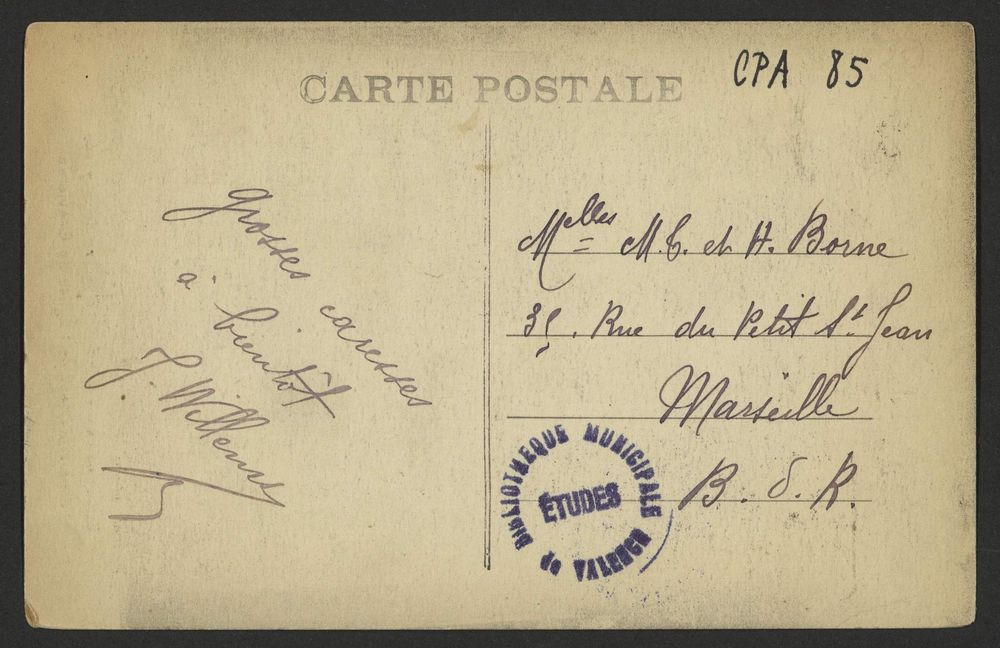 CARTE POSTALE
CPA 85
grosses caresses
à bientôt
J. Willems
Melles M. C. et H. Borne
35. Rue du Petit St Jean
Marseille
B. d. R.
BIBLIOTHEQUE MUNICIPALE
ÉTUDES
de VALENCE